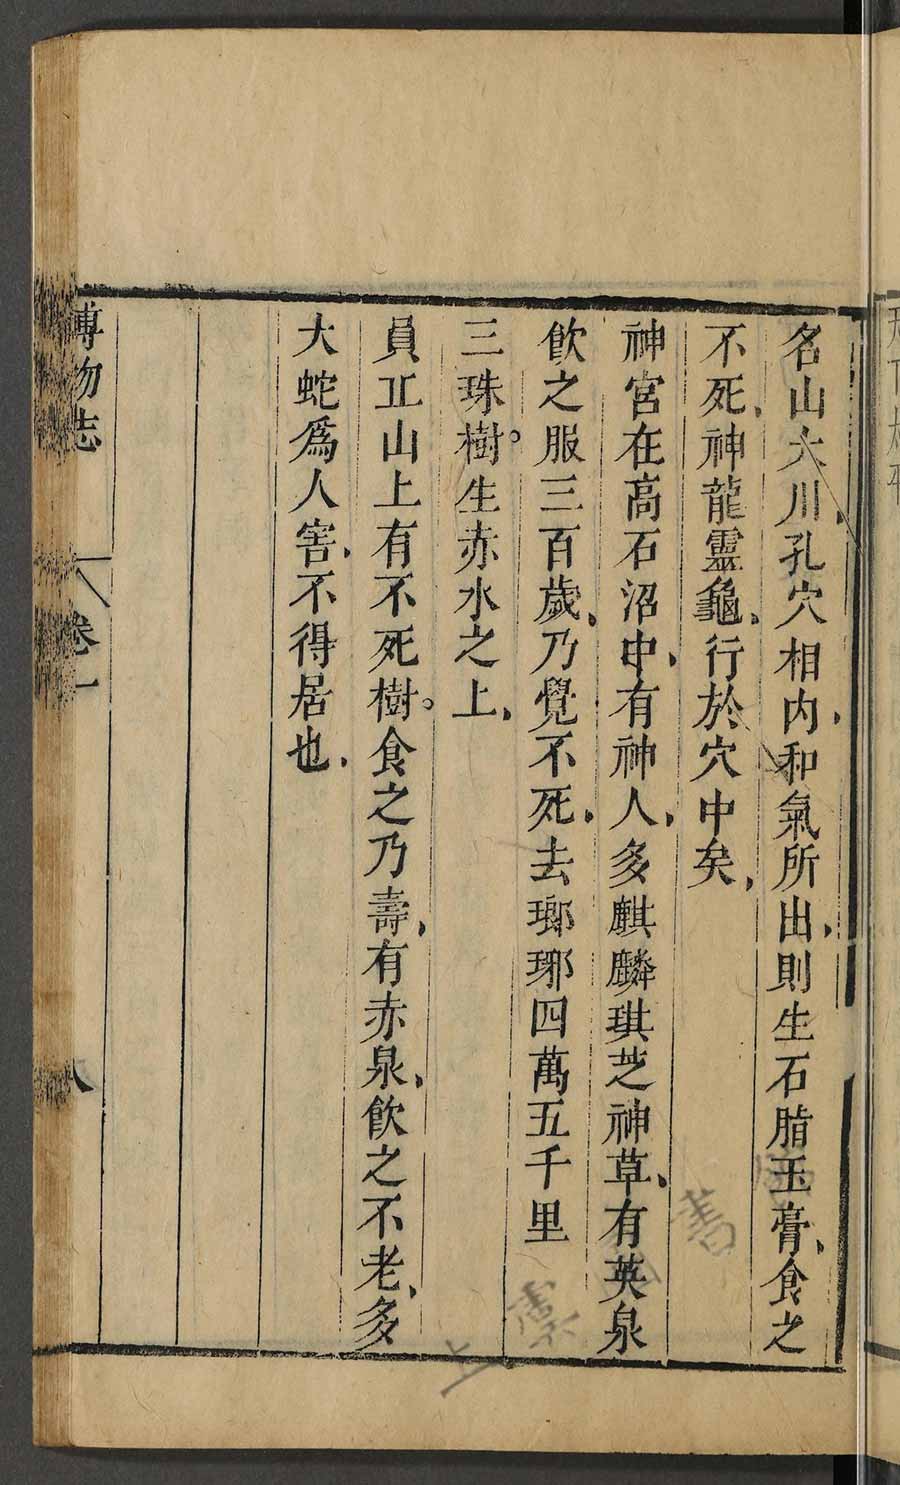 名山大川、孔穴相内、和氣所出、則生石脂玉膏、食之
不死、神龍靈龜、行於穴中矣、
神宮在高石沼中、有神人、多麒麟琪芝神草、有英泉
飲之服三百歲、乃覺不死、去瑯琊四萬五千里
三珠樹。生赤水之上、
員丘山上有不死樹。食之乃壽、有赤泉、飲之不老、多
大蛇爲人害、不得居也、
博物志 卷一 八